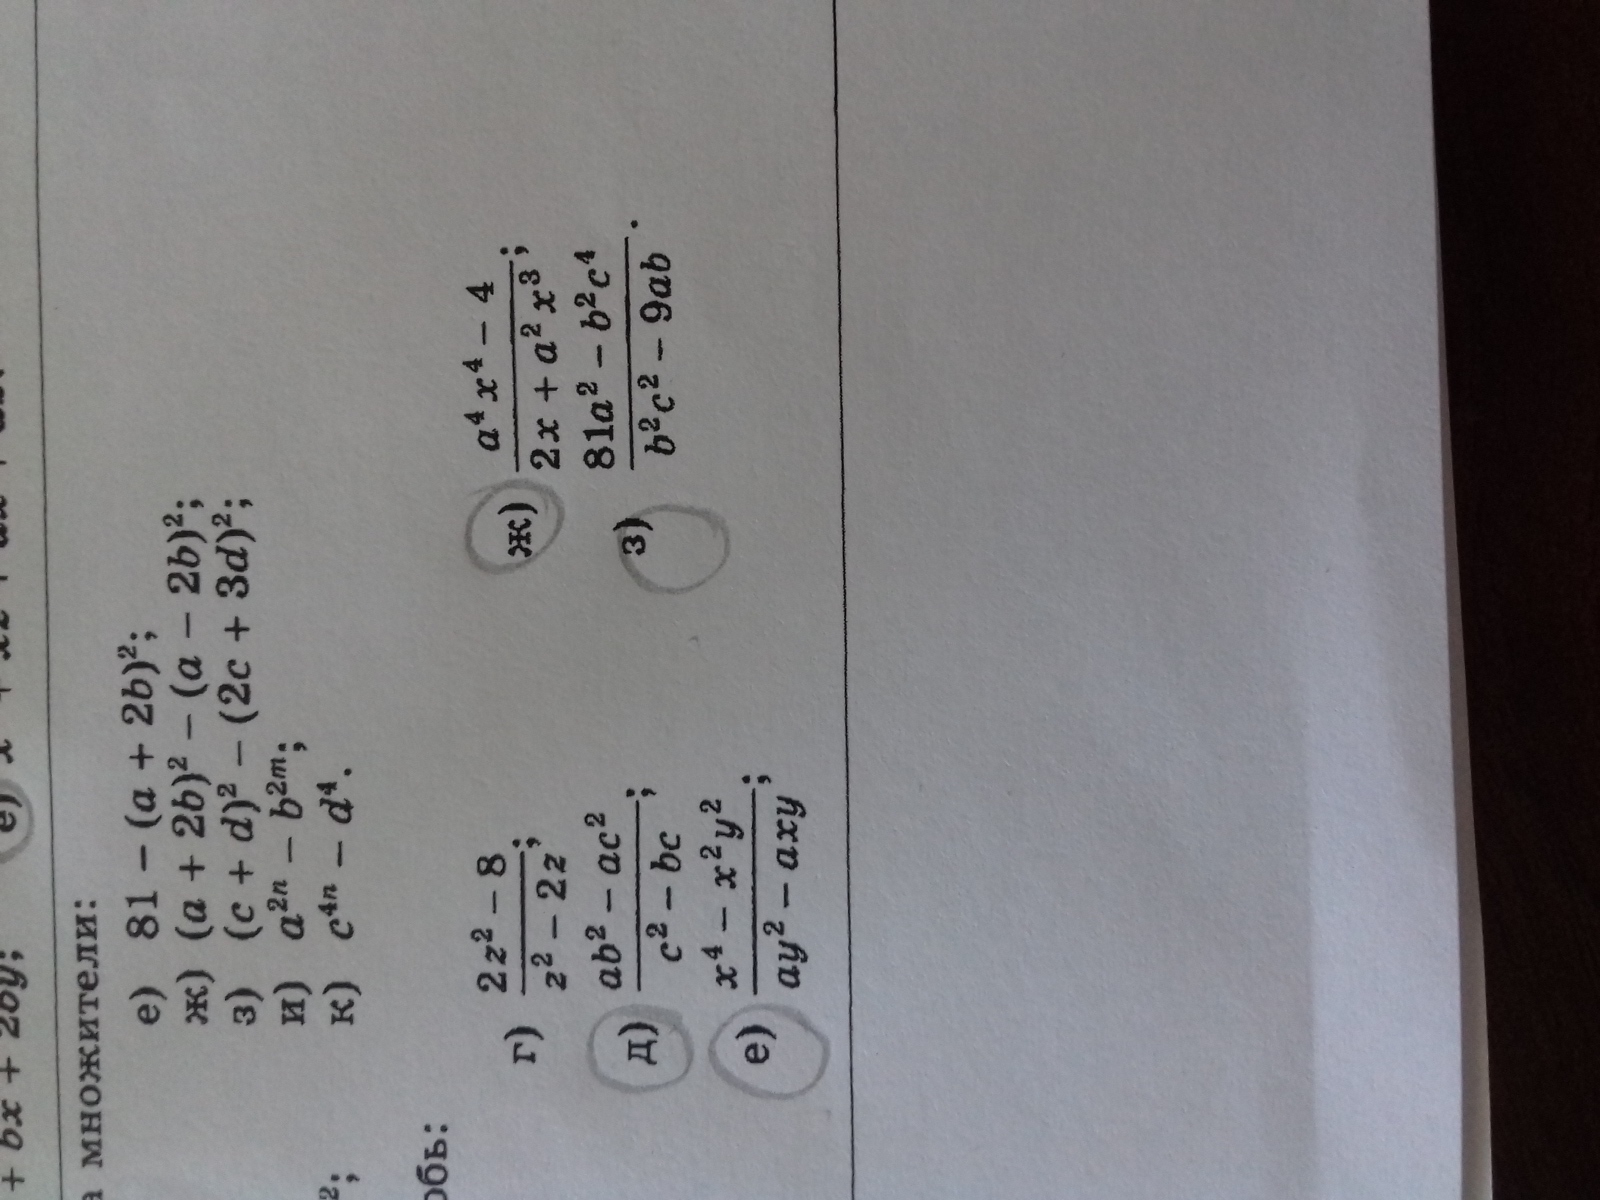 + bx + 2by;
е) x
множители:
е) 81 − (a + 2b)²;
ж) (a + 2b)² − (a − 2b)²;
з) (c + d)² − (2c + 3d)²;
и) a²ⁿ − b²ᵐ;
к) c⁴ⁿ − d⁴.
²;
обь:
г) (2z² − 8)/(z² − 2z);
д) (ab² − ac²)/(c² − bc);
е) (x⁴ − x²y²)/(ay² − axy);
ж) (a⁴x⁴ − 4)/(2x + a²x³);
з) (81a² − b²c⁴)/(b²c² − 9ab).